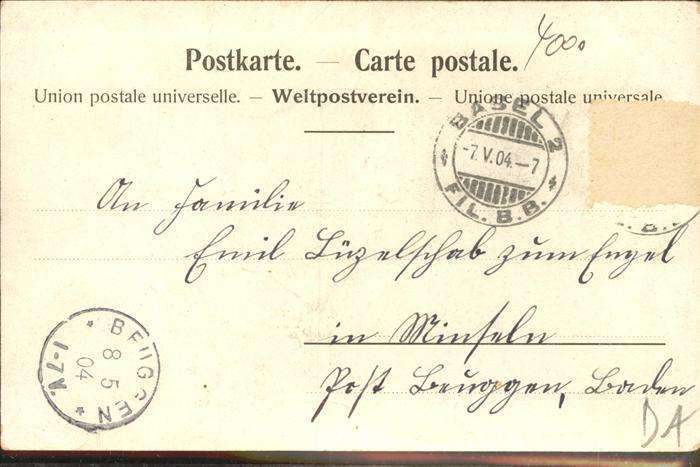 4000
Postkarte. — Carte postale.
Union postale universelle. — Weltpostverein. — Unione postale universale
BASEL 2
-7.V.04.-7
FIL. B.B.
B.
An Familie
Emil Lüzelschab zum Engel
in Minseln
Post Beuggen, Baden
BEUGGEN
8 5
04
1-7N
DA